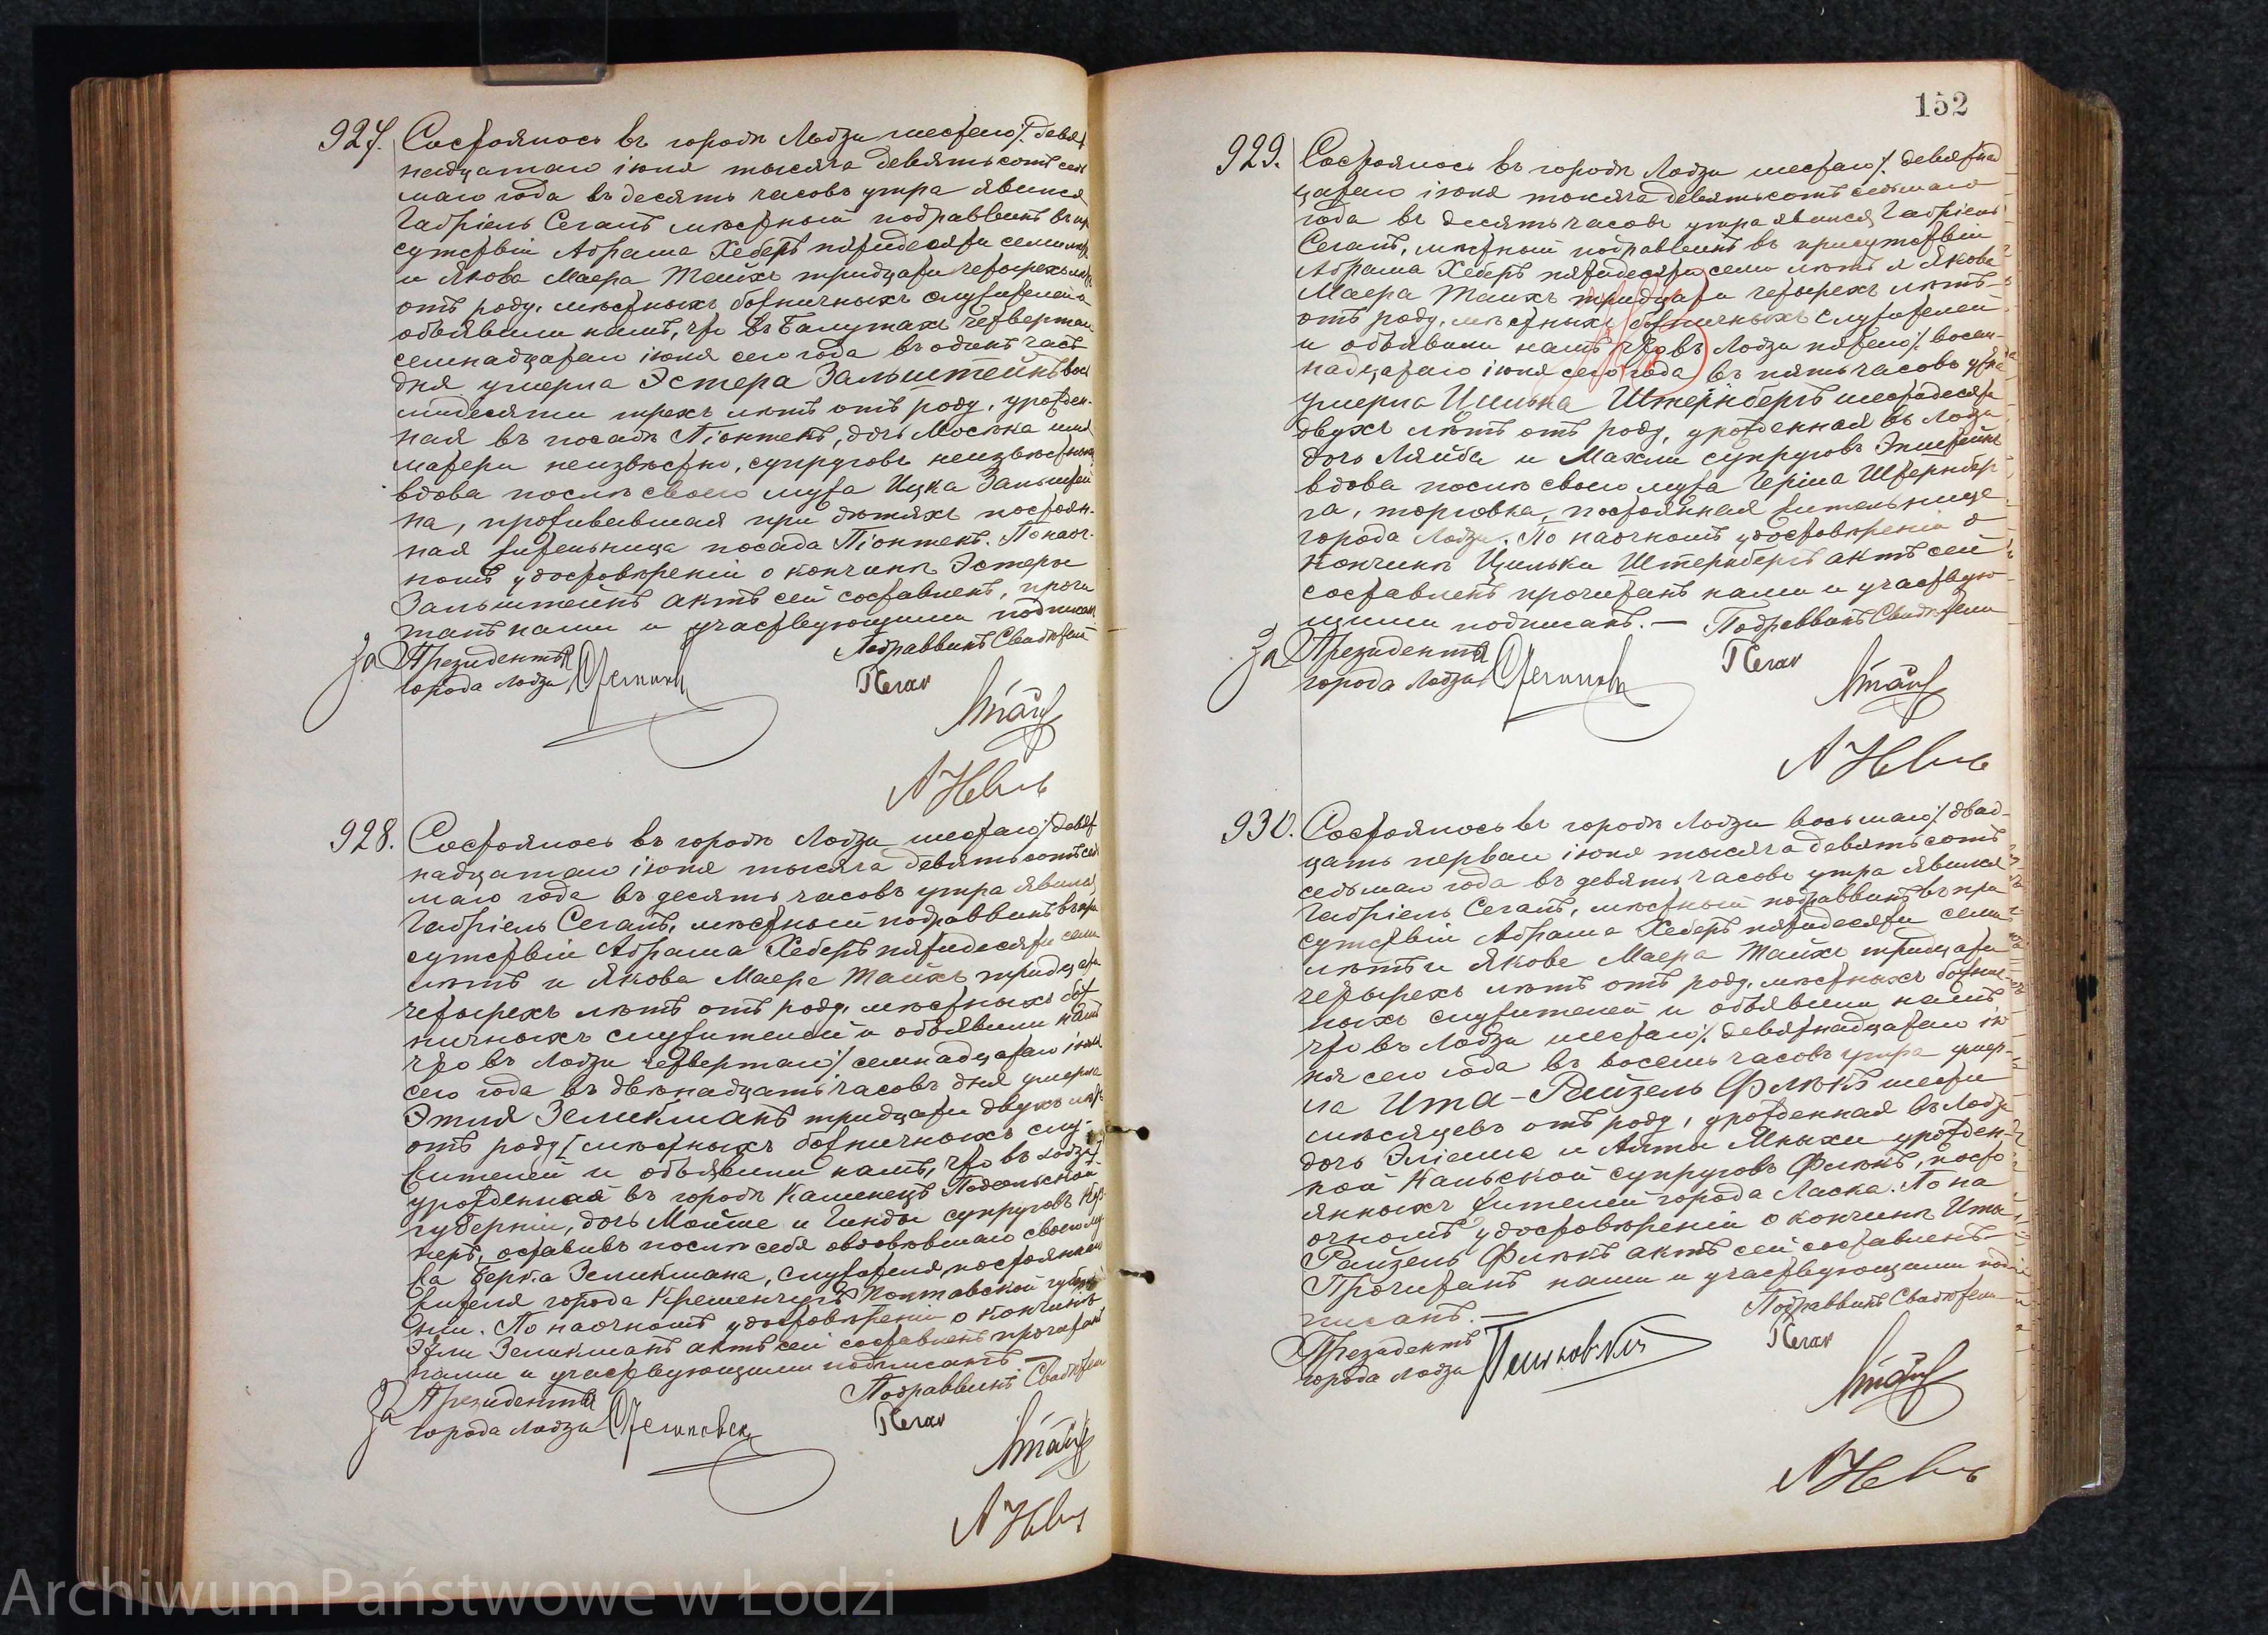 927. Состоялось въ городѣ Лодзи шестаго/ девят
надцатаго іюня тысяча девятьсотъ седь
маго года въ десять часовъ утра явился
Габріель Сегалъ мѣстный подраввинъ въ при
сутствіи Абрама Хеберъ пятидесяти семи лѣтъ
и Якова Маера Тайхъ тридцати четырехъ лѣтъ
отъ роду, мѣстныхъ божничныхъ служителей и
объявили намъ, что въ Балутахъ четвертаго
семнадцатаго іюня сего года въ одинъ часъ
дня умерла Эстера Зальштейнъ вось
мидесяти трехъ лѣтъ отъ роду, урожден-
ная въ посадѣ Піонтекъ, дочь Мосѣка имя
матери неизвѣстно, супруговъ неизвѣстныхъ
вдова послѣ своего мужа Ицка Зальштей
на, проживавшая при дѣтяхъ постоян-
ная жительница посада Піонтекъ. По наоч-
номъ удостовѣреніи о кончинѣ Эстеры
Зальштейнъ актъ сей составленъ, прочи
танъ нами и участвующими подписанъ.
За Президентъ Подраввинъ Свидѣтели
города Лодзи
928. Состоялось въ городѣ Лодзи шестаго/ девят
надцатаго іюня тысяча девятьсотъ седь
маго года въ десять часовъ утра явился
Габріель Сегалъ, мѣстный подраввинъ въ при
сутствіи Абрама Хеберъ пятидесяти семи
лѣтъ и Якова Маера Тайхъ тридцати
четырехъ лѣтъ отъ роду, мѣстныхъ бож
ничныхъ служителей и объявили намъ
что въ Лодзи четвертаго/ семнадцатаго іюня
сего года въ двѣнадцать часовъ дня умерла
Этля Зеликманъ тридцати двухъ лѣтъ
отъ роду [мѣстныхъ божничныхъ слу-
жителей и объявили намъ, что въ Лодзи]
урожденная въ городѣ Каменецъ Подольской
губерніи, дочь Мойше и Гинды супруговъ
неръ, оставивъ послѣ себя овдовѣвшаго своего му
жа Берка Зеликмана, служителя, постояннаго
жителя города Кременчугъ Полтавской губер
ніи. По наочномъ удостовѣреніи о кончинѣ
Этли Зеликманъ актъ сей составленъ прочитанъ
нами и участвующими подписанъ.
За Президентъ Подраввинъ Свидѣтели
города Лодзи
152
929. Состоялось въ городѣ Лодзи шестаго/ девятнад
цатаго іюня тысяча девятьсотъ седьмаго
года въ десять часовъ утра явился Габріель
Сегалъ, мѣстный подраввинъ въ присутствіи
Абрама Хеберъ пятидесяти семи лѣтъ и Якова
Маера Тайхъ тридцати четырехъ лѣтъ
отъ роду, мѣстныхъ божничныхъ служителей
и объявили намъ что въ Лодзи пятаго/ восем-
надцатаго іюня сего года въ пять часовъ утра
умерла Цилька Штернбергъ шестидесяти
двухъ лѣтъ отъ роду, урожденная въ Лодзи
дочь Ляйба и Махли супруговъ Эпштейнъ
вдова послѣ своего мужа Герша Штернбер
га, торговка, постоянная жительница
города Лодзи. По наочномъ удостовѣреніи о
кончинѣ Цильки Штернбергъ актъ сей
составленъ прочитанъ нами и участвую-
щими подписанъ. — Подраввинъ Свидѣтели
За Президентъ
города Лодзи
930. Состоялось въ городѣ Лодзи восьмаго/ двад-
цать перваго іюня тысяча девятьсотъ
седьмаго года въ девять часовъ утра явился
Габріель Сегалъ, мѣстный подраввинъ въ при
сутствіи Абрама Хеберъ пятидесяти семи
лѣтъ и Якова Маера Тайхъ тридцати
четырехъ лѣтъ отъ роду, мѣстныхъ божнич-
ныхъ служителей и объявили намъ
что въ Лодзи шестаго/ девятнадцатаго ію
ня сего года въ восемь часовъ утра умер-
ла Ита-Райзель Флюкъ шести
мѣсяцевъ отъ роду, урожденная въ Лодзи
дочь Эліаша и Алты Мныхи урожден-
ной Кальской супруговъ Флюкъ, посто
янныхъ жителей города Ласка. По на
очномъ удостовѣреніи о кончинѣ Иты
Райзель Флюкъ актъ сей составленъ
Прочитанъ нами и участвующими под
писанъ. — Подраввинъ Свидѣтели
Президентъ
города Лодзи
Archiwum Państwowe w Łodzi